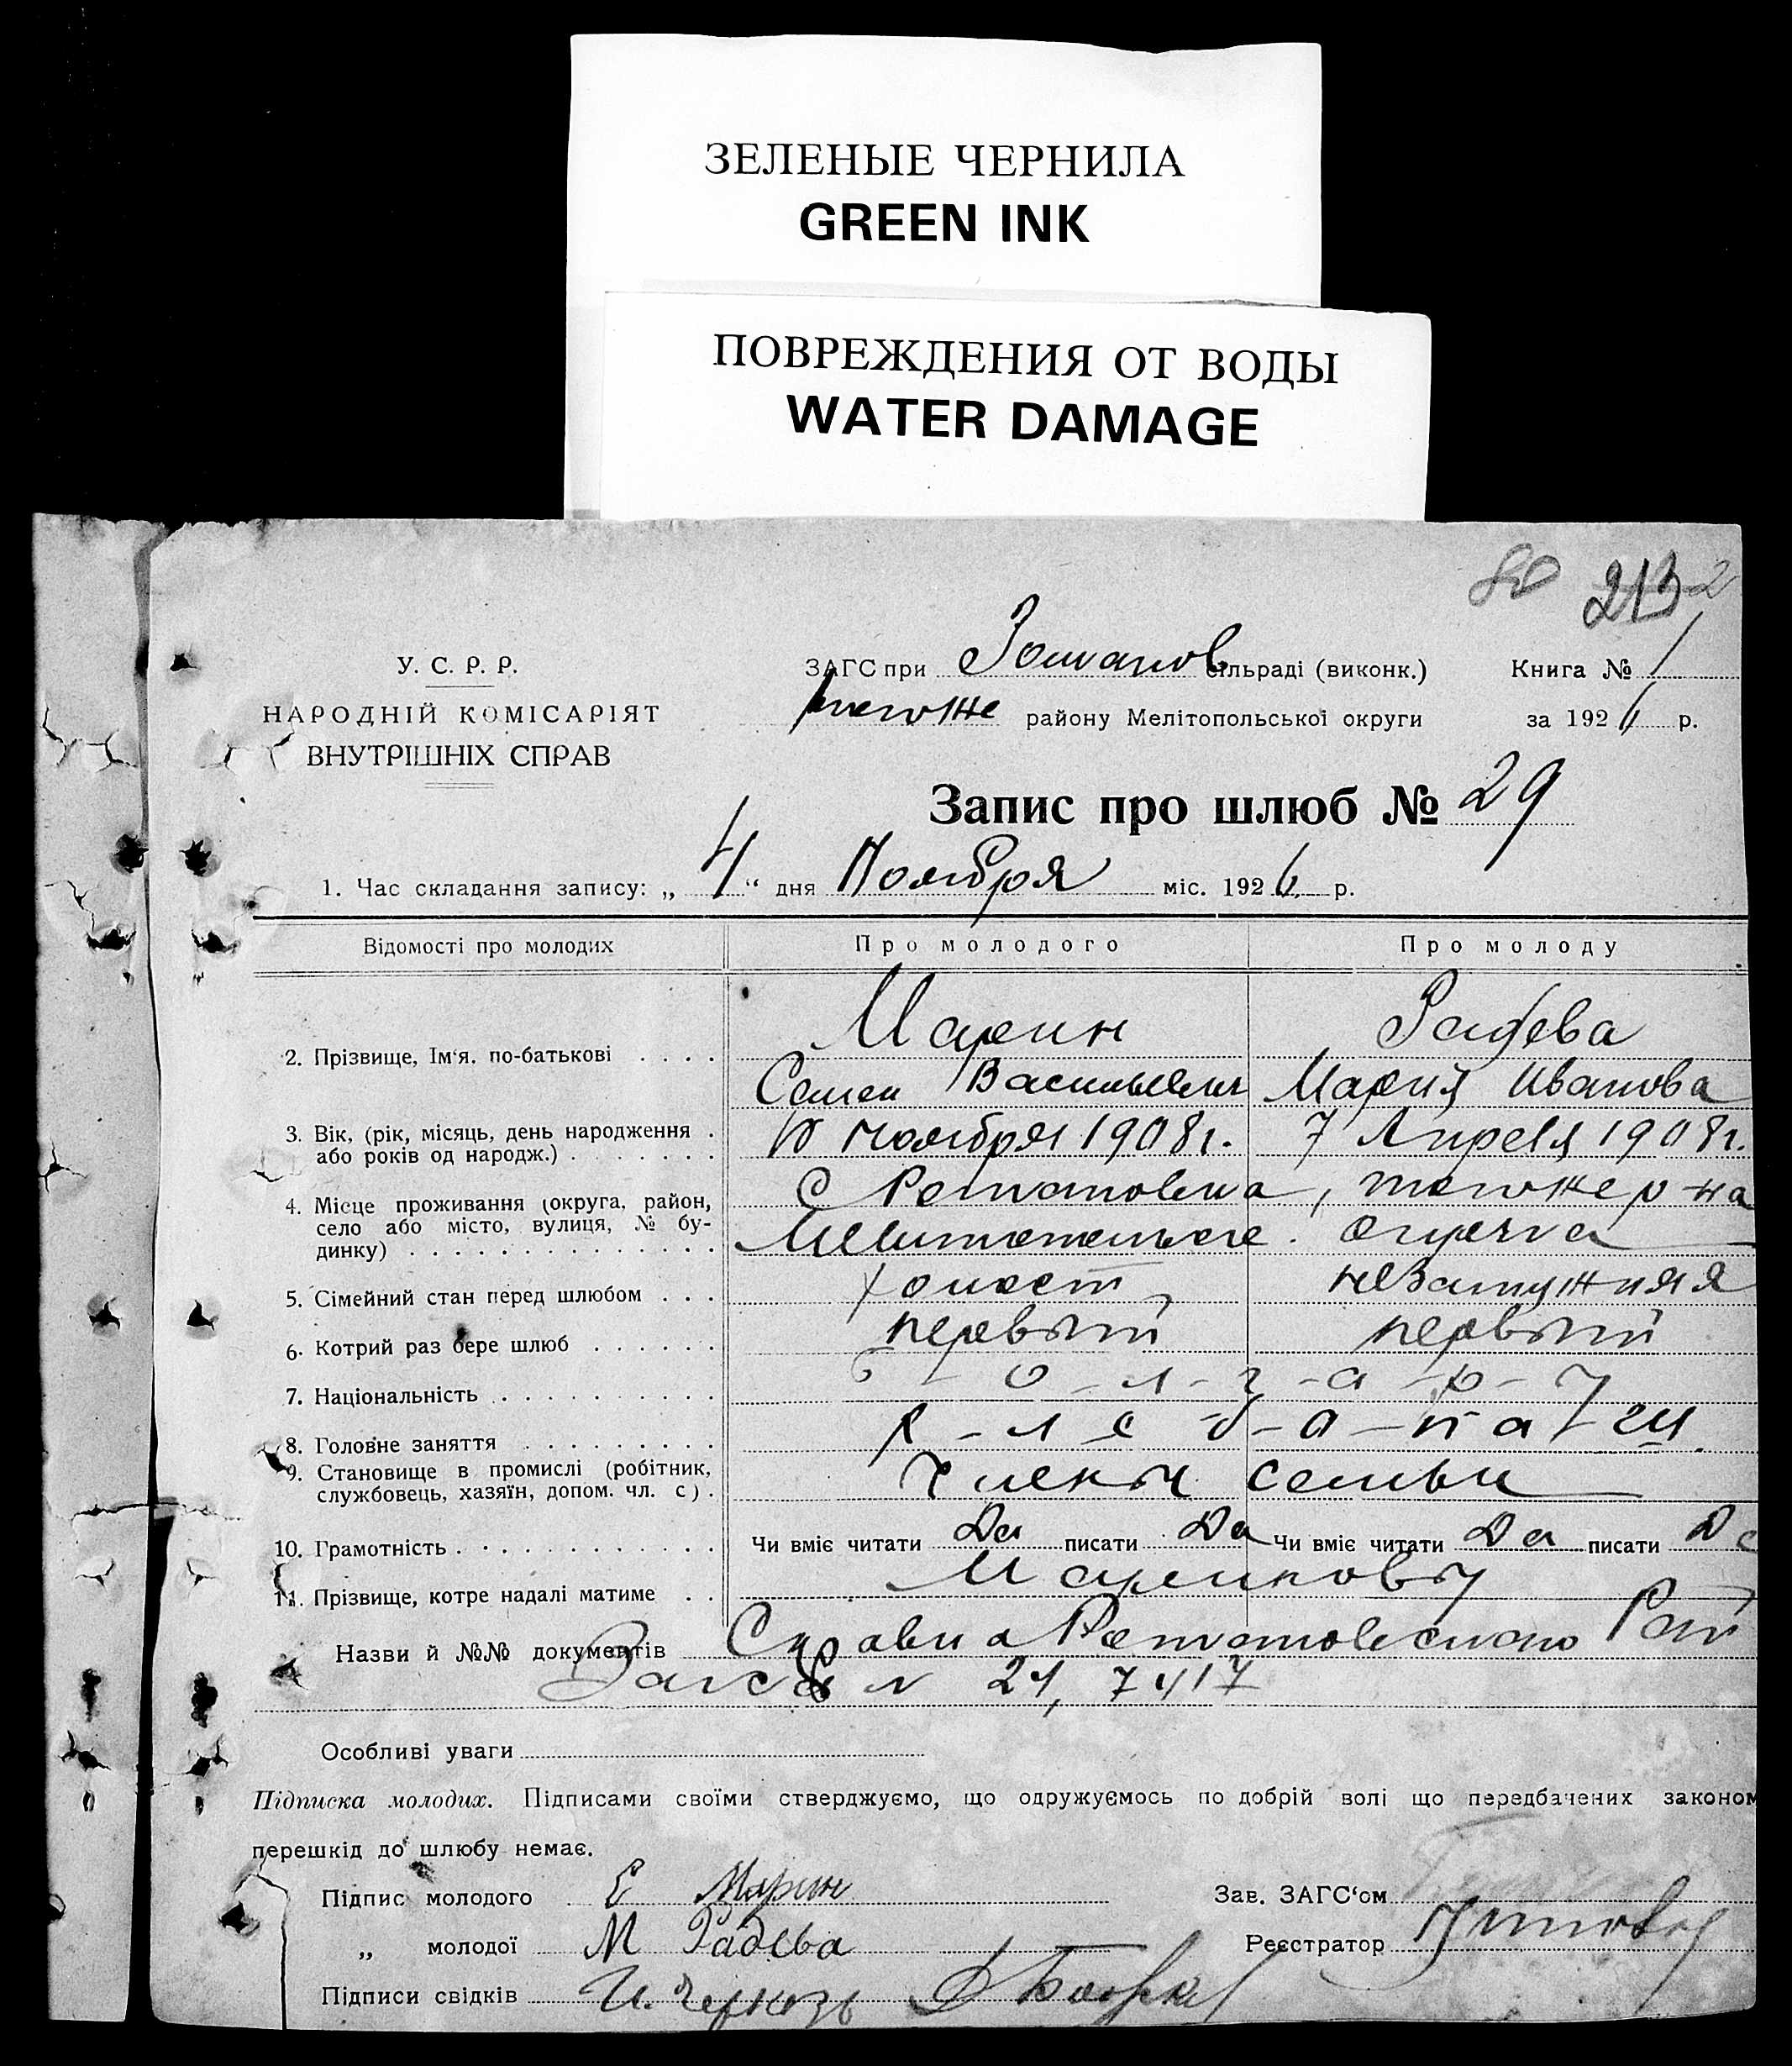 ЗЕЛЕНЫЕ ЧЕРНИЛА
GREEN INK
ПОВРЕЖДЕНИЯ ОТ ВОДЫ
WATER DAMAGE
80 213 2
У. С. Р. Р.
НАРОДНІЙ КОМІСАРІЯТ
ВНУТРІШНІХ СПРАВ
ЗАГС при сільраді (виконк.) Книга № 1
тогоже району Мелітопольської округи за 1926 р.
Запис про шлюб № 29
1. Час складання запису: „ 4 “ дня Ноября міс. 1926 р.
Відомості про молодих Про молодого Про молоду
2. Прізвище, Ім‘я. по-батькові . . . . Марин Радева
Семен Васильевич Мария Иванова
3. Вік, (рік, місяць, день народження . або років од народж.) . . . . . . . ноября 1908 г. 7 Апреля 1908 г.
4. Місце проживання (округа, район, село або місто, вулиця, № будинку) . . . . . . . . . . . . . . с , тогоже р-на
округа
5. Сімейний стан перед шлюбом . . . холост незамужняя
6. Котрий раз бере шлюб . . . . . . первый первый
7. Національність . . . . . . . . . . б-о-л-г-а-р-ы
8. Головне заняття . . . . . . . . . х-л-е-б-о-п-а-ш
9. Становище в промислі (робітник, службовець, хазяїн, допом. чл. с) . члены семьи
10. Грамотність . . . . . . . . . . . . Чи вміє читати Да писати Да Чи вміє читати Да писати Да
11. Прізвище, котре надалі матиме . . Мариновы
Назви й №№ документів Справка Рай
Загса № 21, 7417
Особливі уваги
Підписка молодих. Підписами своїми стверджуємо, що одружуємось по добрій волі що передбачених законом
перешкід до шлюбу немає.
Підпис молодого Марин Зав. ЗАГС‘ом
„ молодої М Радева Реєстратор
Підписи свідків И.